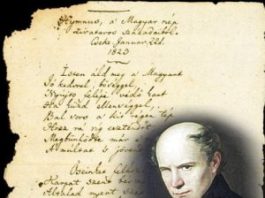 Hymnus, a' Magyar nép
zivataros századaiból.
Cseke Januar 22d.
1823
Isten áldd meg a' Magyart
Jó kedvvel, bőséggel,
Nyújts feléje védő kart
Ha küzd ellenséggel,
Bal sors a' kit régen tép
Hozz rá víg esztendőt
Megbünhödte már a'
A' multat 's jövend
Őseinket felho
Kárpát szent bér
Általad nyert sz